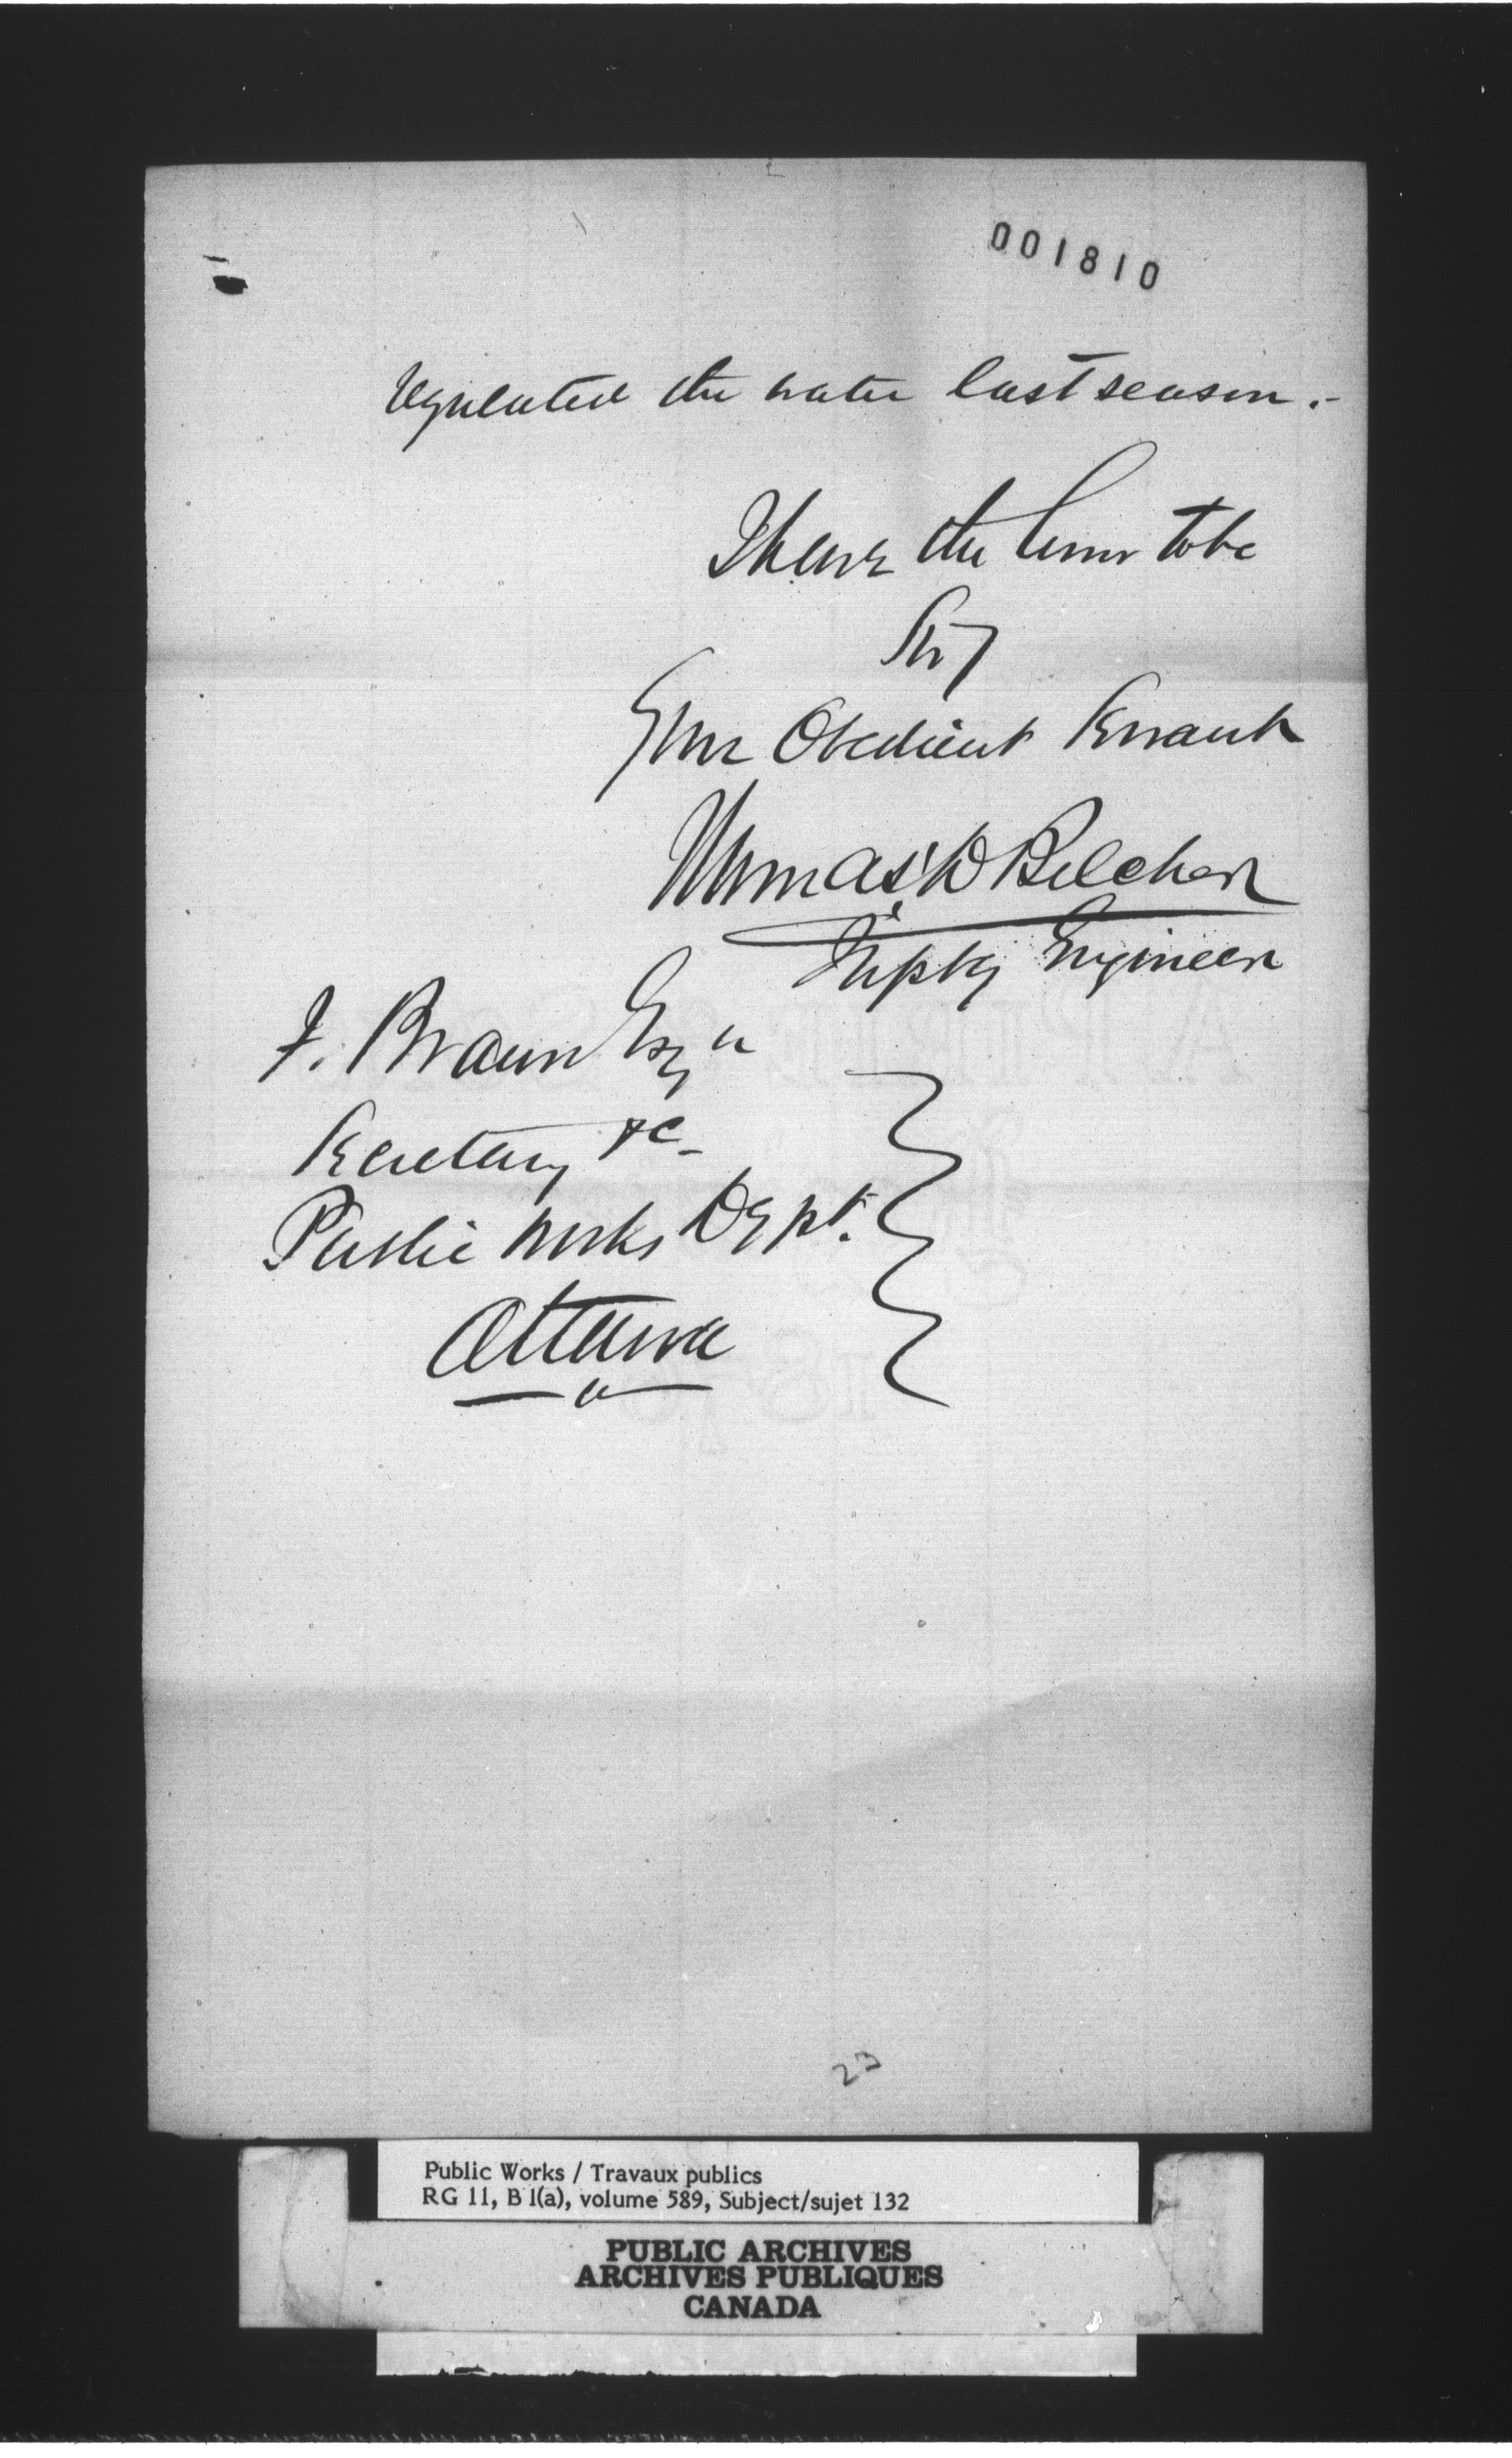 001810
regulated the water last season.-
I have the honor to be
Sir,
Your Obedient Servant
Thomas D Belcher
Supty Engineer
F. Braun Esqr
Secretary &c-
Public Works Dept.
Ottawa
23
Public Works / Travaux publics
RG 11, B 1(a), volume 589, Subject/sujet 132
PUBLIC ARCHIVES
ARCHIVES PUBLIQUES
CANADA